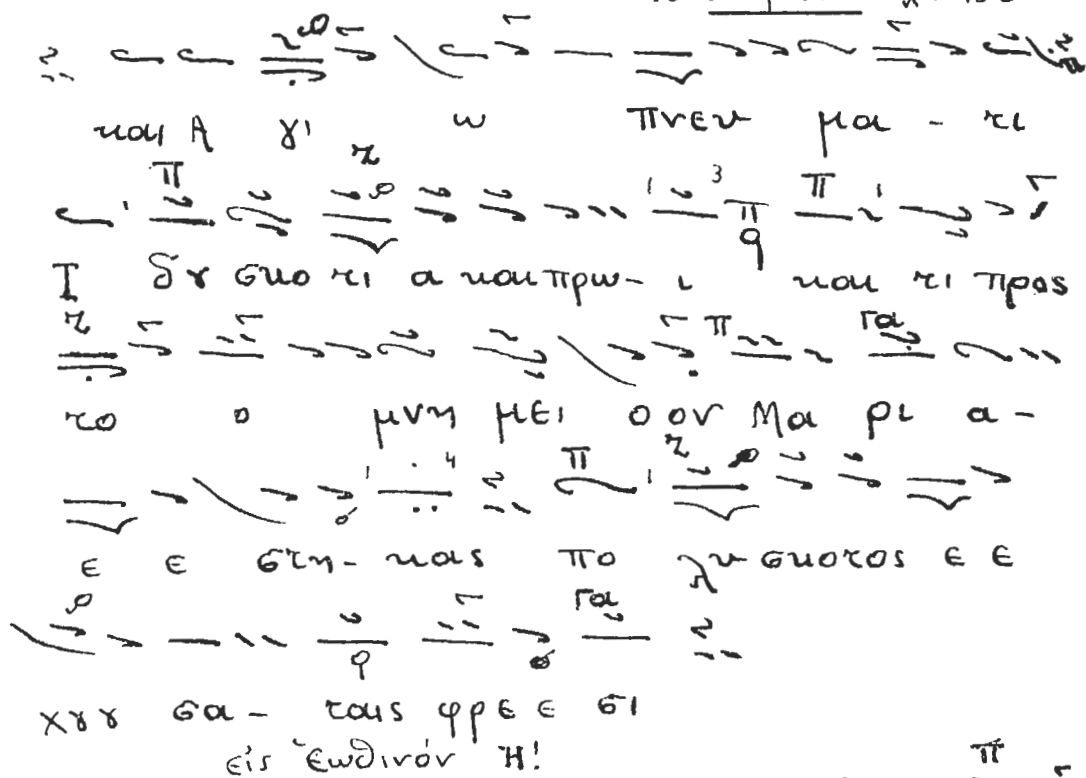 και Α γι ω πνευ μα - τι
Ι δȣ σκο τι α και πρω - ι και τι προς
το ο μνη μει ο ον Μα ρι α -
ε ε στη - κας πο λυ σκοτος ε ε
χȣ ȣ σα - ταις φρε ε σι
εἰς Ἑωθινόν Η!